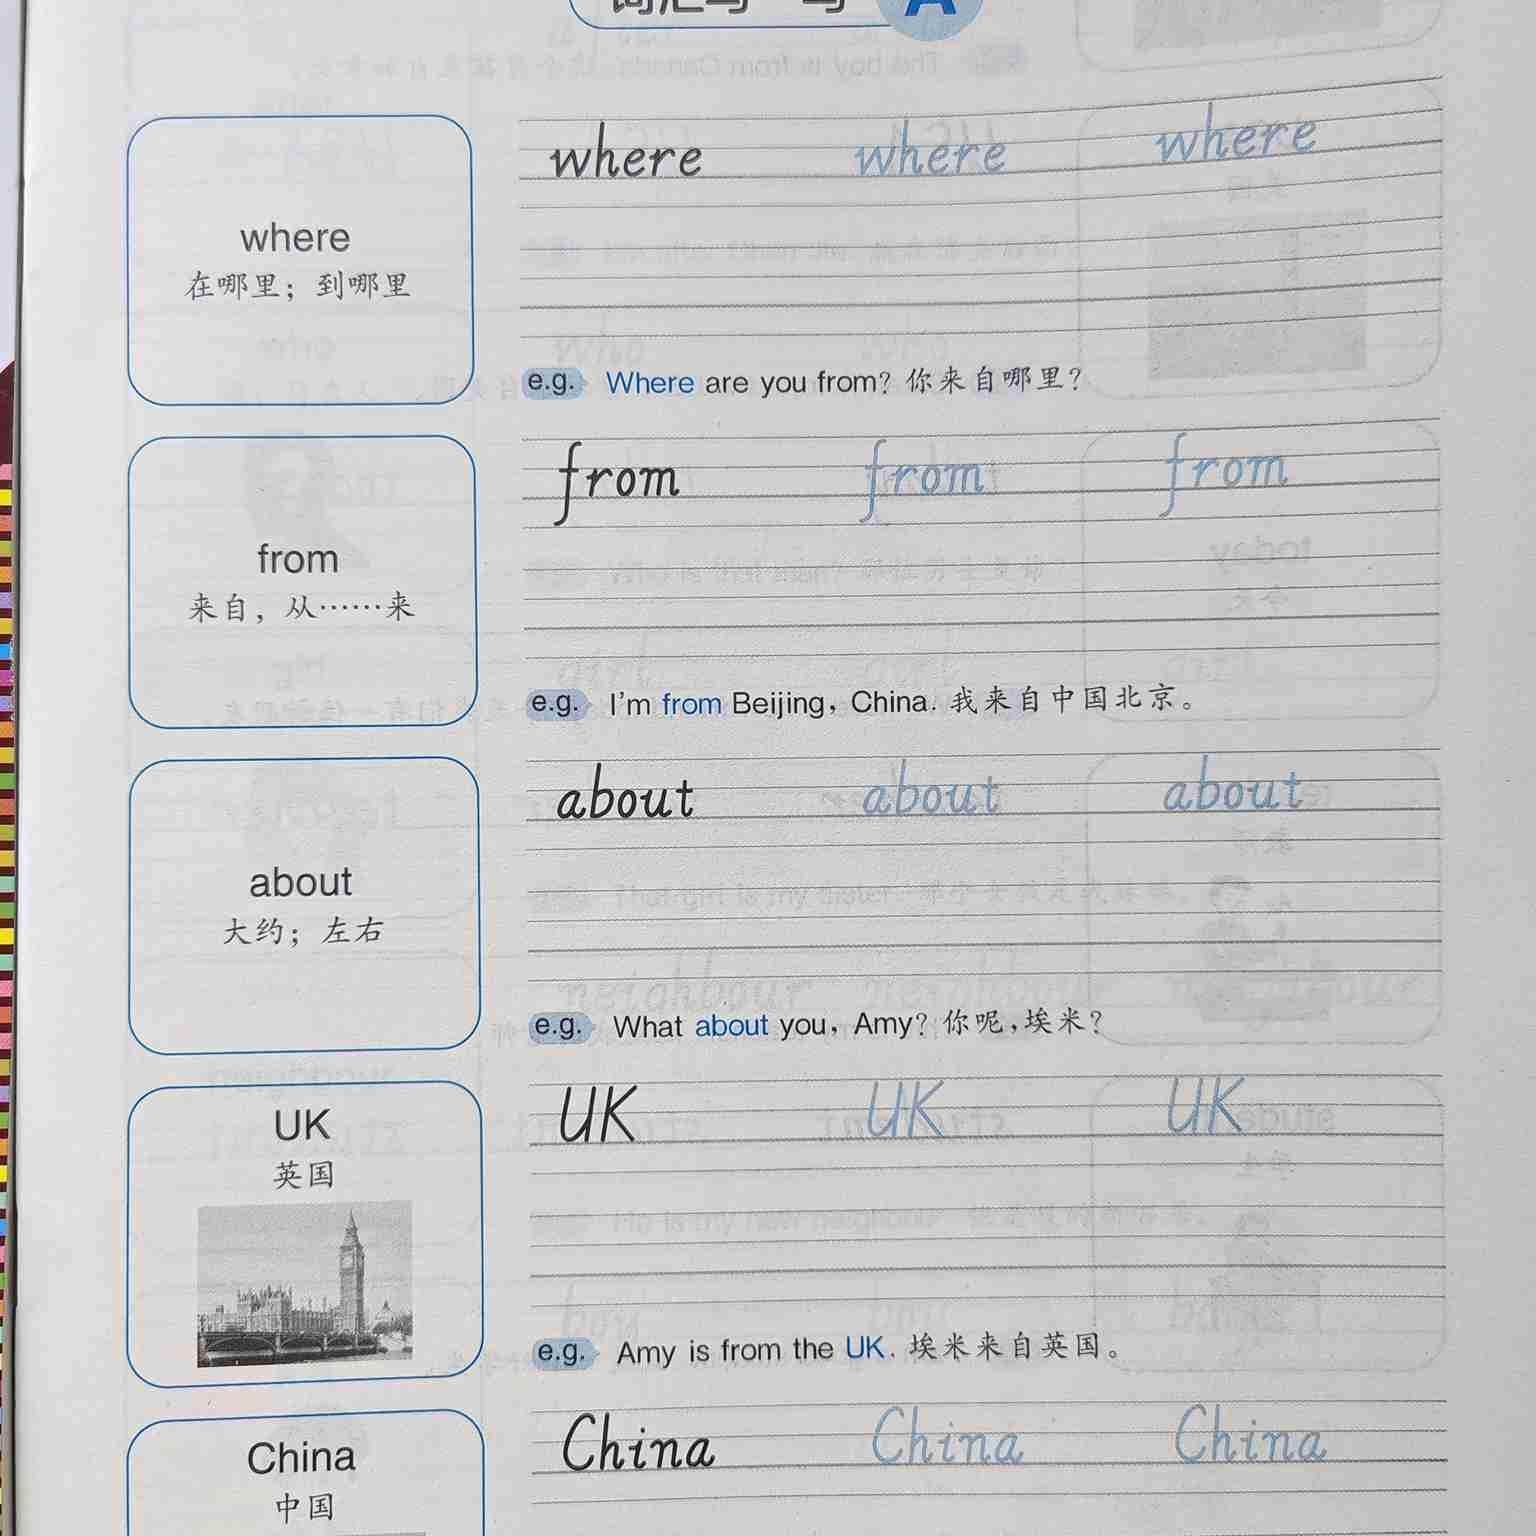 词汇写一写 A
where
在哪里；到哪里
where where where
e.g. Where are you from? 你来自哪里？
from
来自，从……来
from from from
e.g. I'm from Beijing, China. 我来自中国北京。
about
大约；左右
about about about
e.g. What about you, Amy? 你呢，埃米？
UK
英国
UK UK UK
e.g. Amy is from the UK. 埃米来自英国。
China
中国
China China China